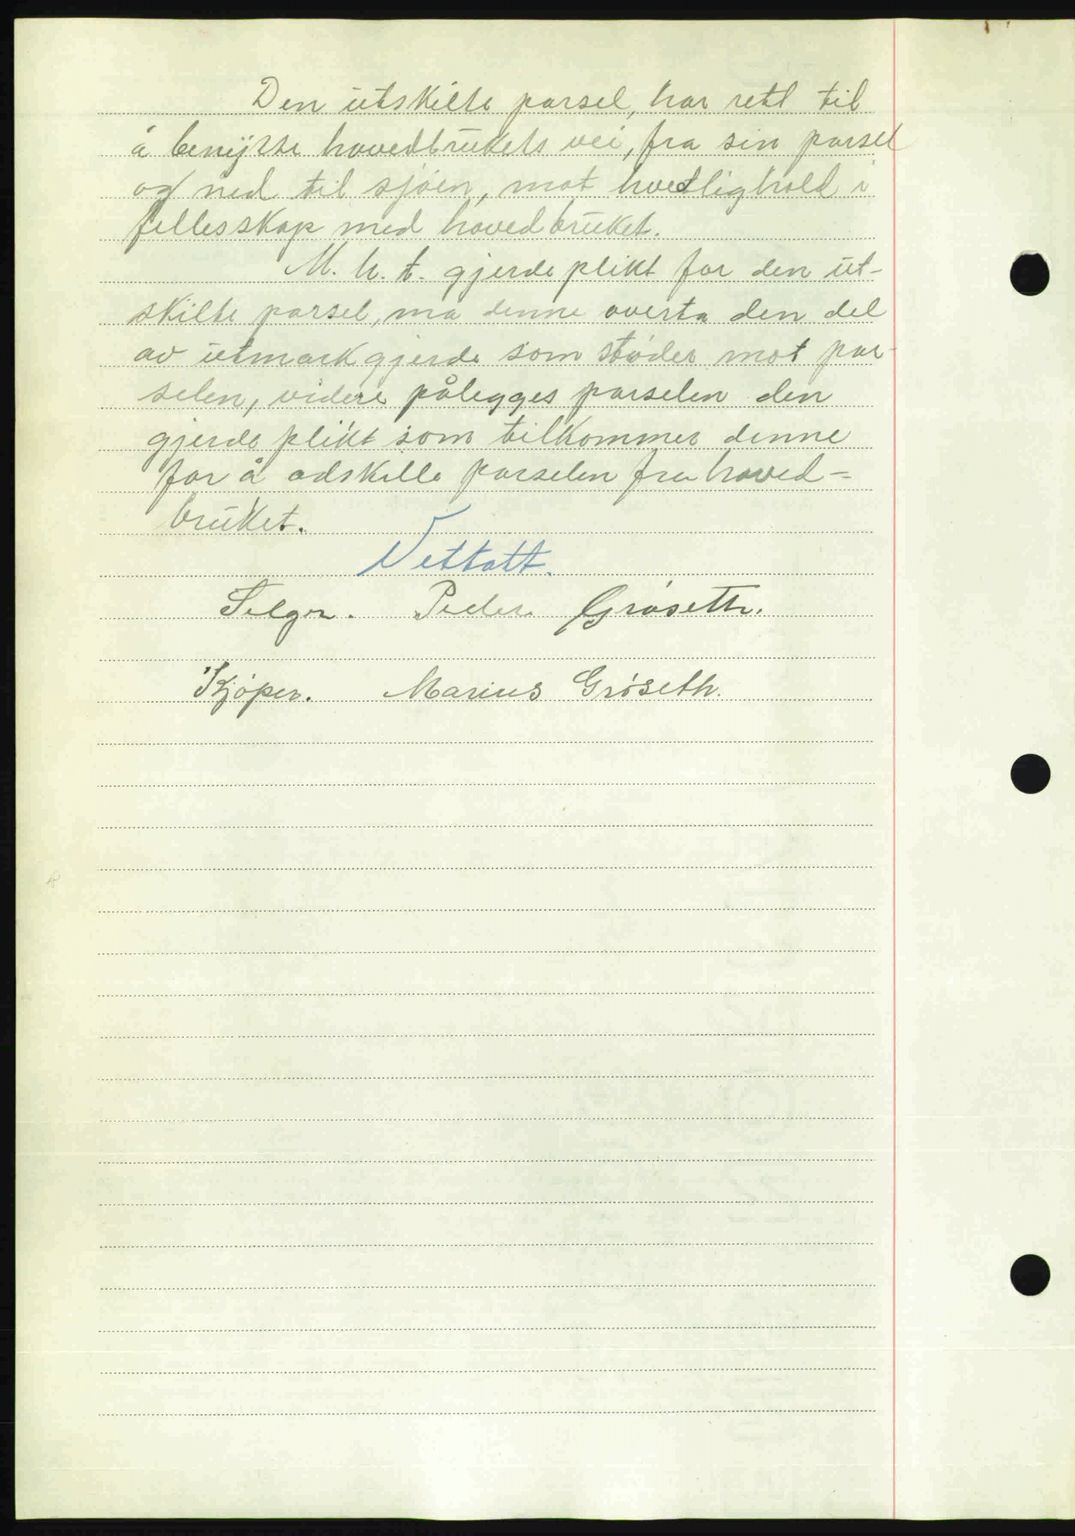 Den utskilte parsel, har rett til
å benytte hovedbrukets vei, fra sin parsel
og ned til sjøen, mot hvedlighold i
fellesskap med hovedbruket.
M. h. t. gjerdeplikt for den ut-
skilte parsel, må denne overta den del
av utmarkgjerde som støder mot par-
selen, videre pålegges parselen den
gjerdeplikt som tilkommer denne
for å adskille parselen fra hoved-
bruket.
Selger. Peder Grøseth.
Kjøper. Marius Grøseth.